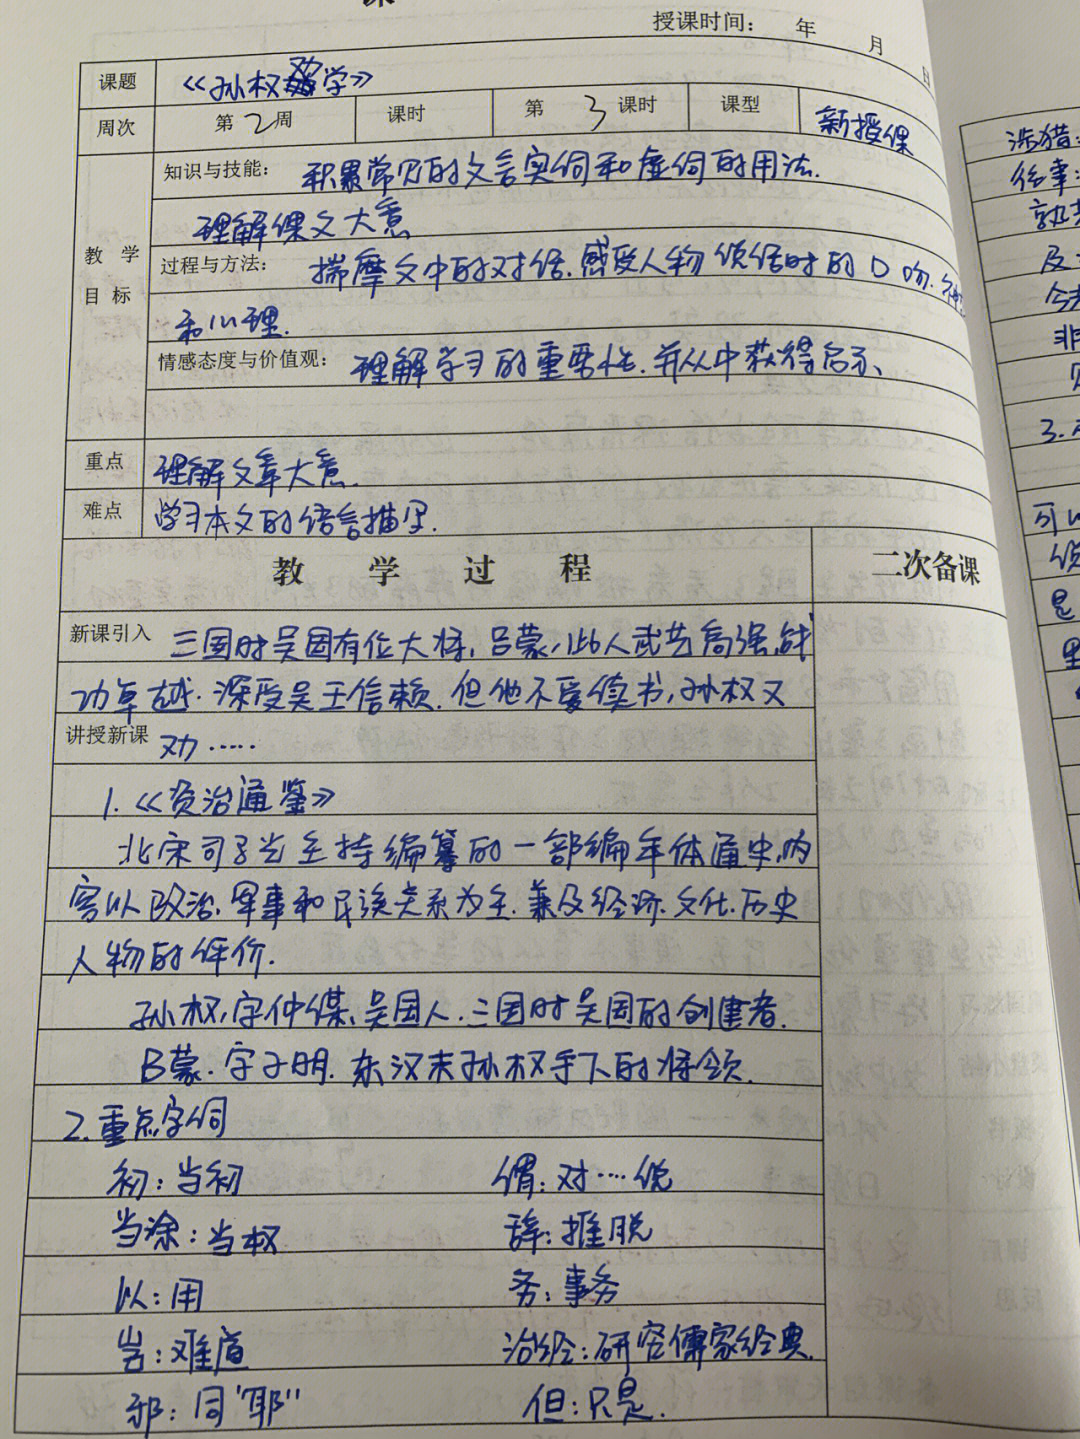 授课时间： 年 月 日
课题 《孙权劝学》
周次 第2周 课时 第3课时 课型 新授课
教学目标
知识与技能： 积累常见的文言实词和虚词的用法.
理解课文大意
过程与方法： 揣摩文中的对话.感受人物说话时的口吻.
和心理.
情感态度与价值观： 理解学习的重要性.并从中获得启示、
重点 理解文章大意.
难点 学习本文的语言描写.
教学过程 二次备课
新课引入 三国时吴国有位大将,吕蒙,此人武艺高强,战
功卓越.深受吴王信赖.但他不爱读书,孙权又
讲授新课 劝……
1.《资治通鉴》
北宋司马光主持编纂的一部编年体通史,内
容以政治.军事和民族关系为主.兼及经济.文化.历史
人物的评价.
孙权,字仲谋,吴国人.三国时吴国的创建者.
吕蒙.字子明.东汉末孙权手下的将领.
2.重点字词
初：当初 谓：对…说
当涂：当权 辞：推脱
以：用 务：事务
岂：难道 治经：研究儒家经典.
邪：同"耶" 但：只是.
涉猎：
往事：
孰
及
今
非
见
3.
可以
说
是